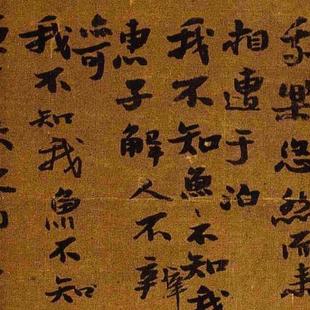 樂悠然而来
相遭于泊
我不知魚〻不知我
惠子解人不
我不知我魚不知